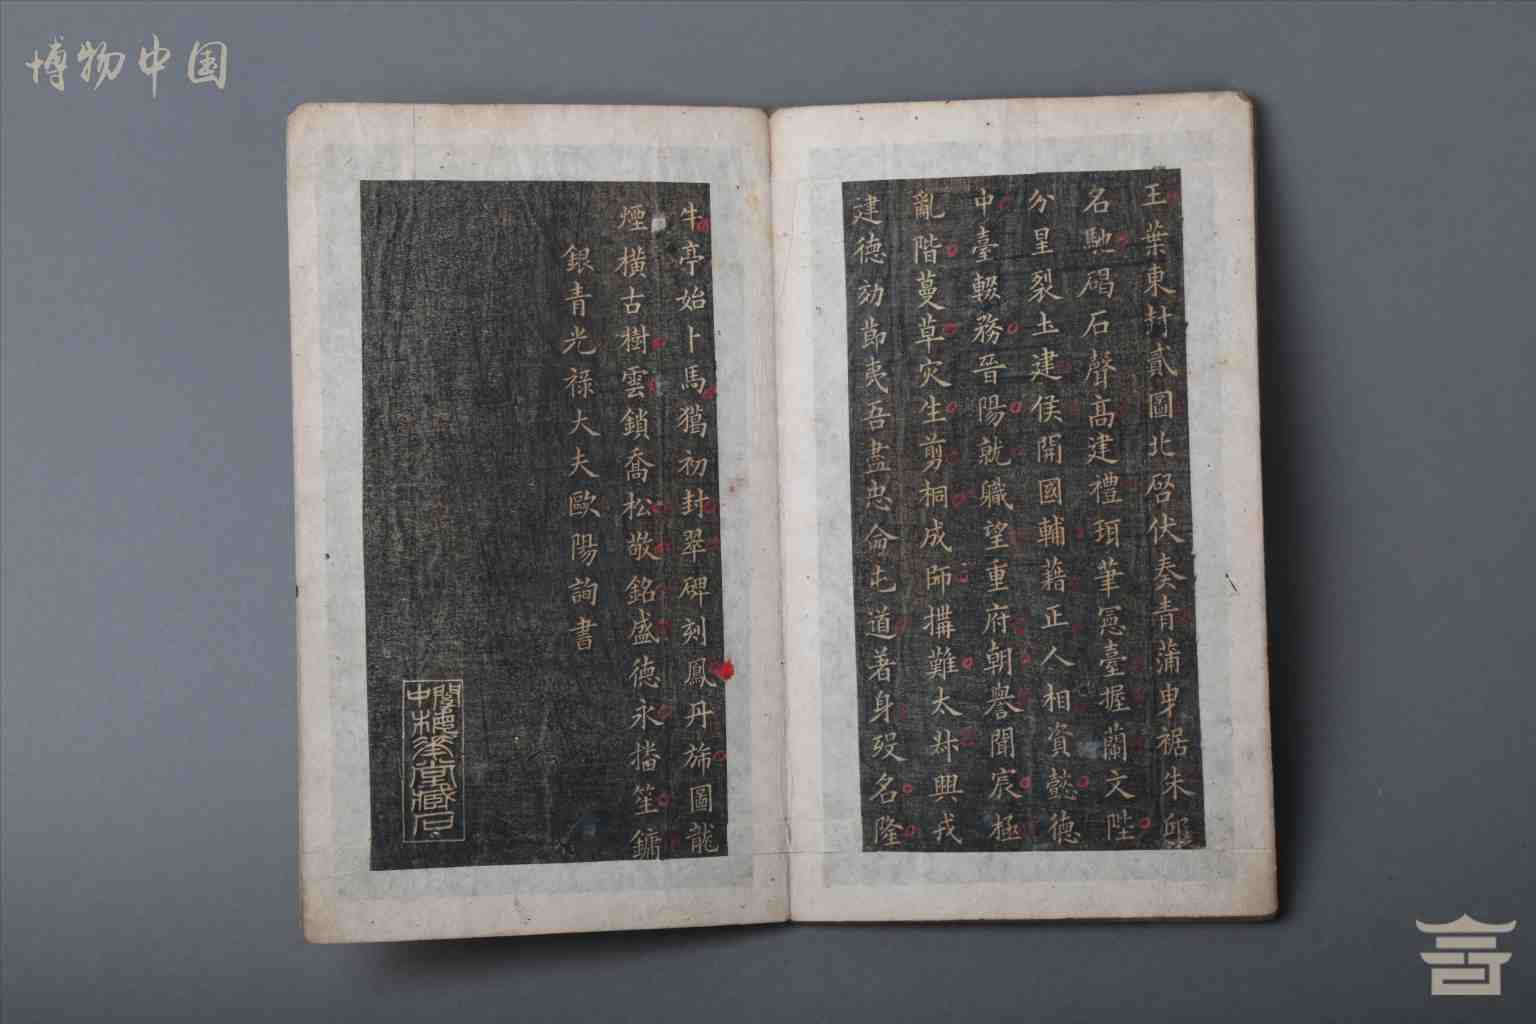 博物中国
玉葉東封貳圖北啓伏奏青蒲曳裾朱邸
名馳碣石聲高建禮珥筆憲臺握蘭文陛
分星裂土建侯開國輔藉正人相資懿德
中臺輟務晉陽就職望重府朝譽聞宸極
亂階蔓草灾生剪桐成師搆難太叔興戎
建德効節夷吾盡忠命屯道著身殁名隆
牛亭始卜馬獦初封翠碑刻鳳丹旐圖龍
煙橫古樹雲鎖喬松敬銘盛德永播笙鏞
銀青光禄大夫歐陽詢書